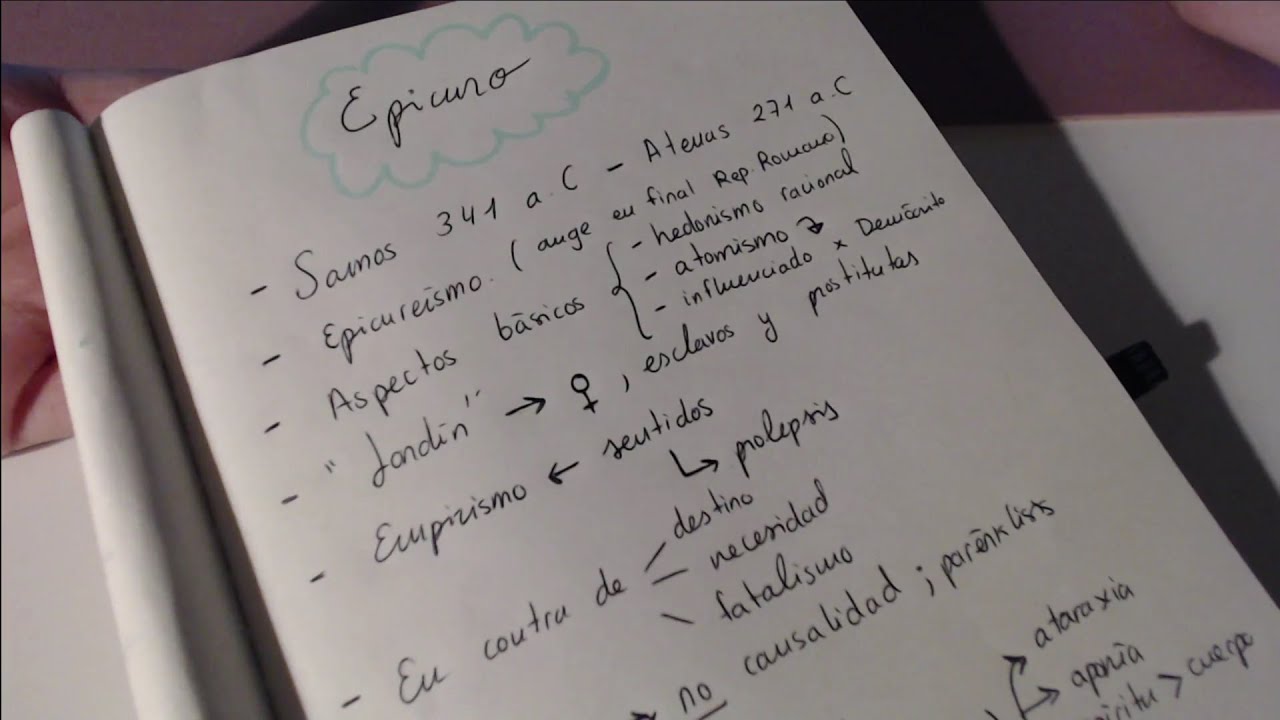 Epicuro
- Samos 341 a.C - Atenas 271 a.C
- Epicureísmo. (auge en final Rep. Romano)
- Aspectos básicos { - hedonismo racional
- atomismo
- influenciado x Demócrito
- "Jardín" → ♀, esclavos y prostitutas
- Empirismo ← sentidos
↳ prolepsis
- En contra de / destino
— necesidad
\ fatalismo
→ no causalidad ; parénklisis
→ ataraxia
→ aponía
espíritu > cuerpo